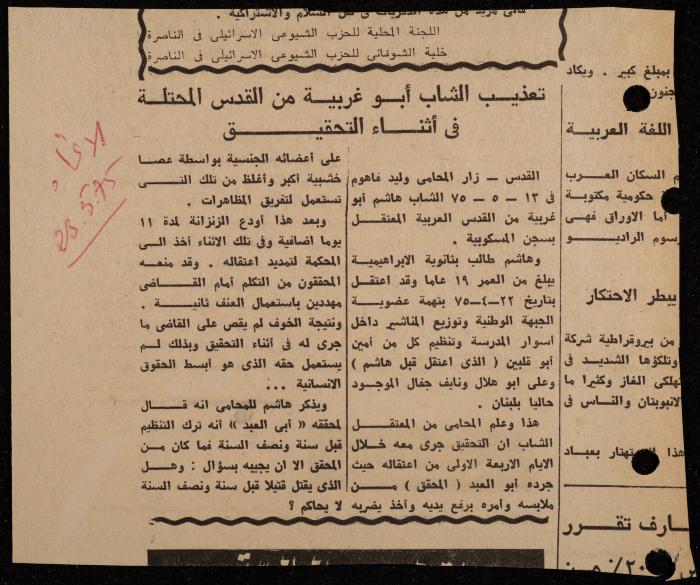 اللجنة المحلية للحزب الشيوعى الاسرائيلى فى الناصرة
خلية الشوفانى للحزب الشيوعى الاسرائيلى فى الناصرة
تعذيب الشاب أبو غربية من القدس المحتلة
فى أثناء التحقيق
القدس – زار المحامى وليد فاهوم
فى ١٣ – ٥ – ٧٥ الشاب هاشم أبو
غربية من القدس العربية المعتقل
بسجن المسكوبية .
وهاشم طالب بثانوية الابراهيمية
يبلغ من العمر ١٩ عاما وقد اعتقل
بتاريخ ٢٢–٤–٧٥ بتهمة عضوية
الجبهة الوطنية وتوزيع المناشير داخل
أسوار المدرسة وتنظيم كل من أمين
أبو قلبين ( الذى اعتقل قبل هاشم )
وعلى ابو هلال ونايف جفال الموجود
حاليا بلبنان .
هذا وعلم المحامى من المعتقل
الشاب ان التحقيق جرى معه خلال
الايام الاربعة الاولى من اعتقاله حيث
جرده أبو العبد ( المحقق ) من
ملابسه وأمره برفع يديه وأخذ يضربه
على أعضائه الجنسية بواسطة عصا
خشبية أكبر وأغلظ من تلك التى
تستعمل لتفريق المظاهرات .
وبعد هذا أودع الزنزانة لمدة ١١
يوما اضافية وفى تلك الاثناء أخذ الى
المحكمة لتمديد اعتقاله . وقد منعه
المحققون من التكلم أمام القاضى
مهددين باستعمال العنف ثانية .
ونتيجة الخوف لم يقص على القاضى ما
جرى له فى أثناء التحقيق وبذلك لم
يستعمل حقه الذى هو أبسط الحقوق
الانسانية ...
ويذكر هاشم للمحامى انه قال
لمحققه « أبى العبد » انه ترك التنظيم
قبل سنة ونصف السنة فما كان من
المحقق الا ان يجيبه بسؤال : وهل
الذى يقتل قتيلا قبل سنة ونصف السنة
لا يحاكم ؟
بمبلغ كبير . ويكاد
جنون
اللغة العربية
م السكان العرب
حكومية مكتوبة
أما الاوراق فهى
رسوم الراديو
يبطر الاحتكار
من بيروقراطية شركة
وتلكؤها الشديد فى
تهلكى الغاز وكثيرا ما
لانبوبتان والناس فى
بعباد
ارف تقرر
الاتحاد
23.5.75